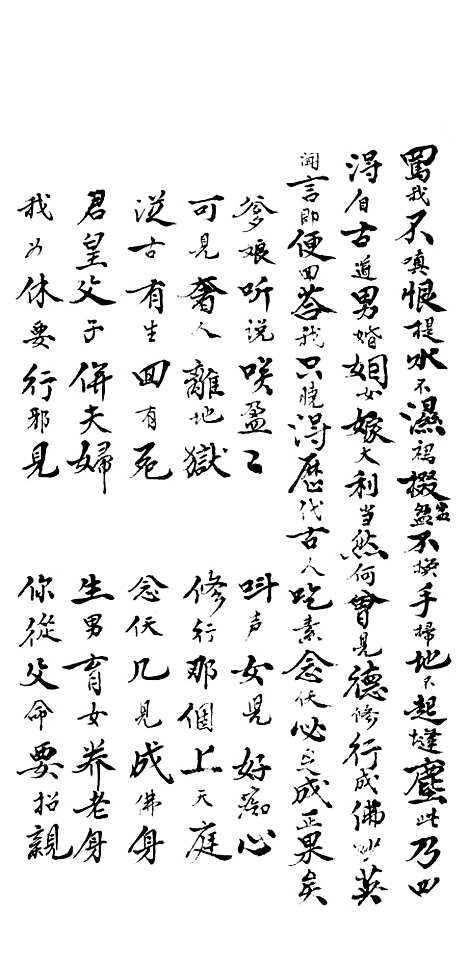 罵我不嗔恨提水不濕裙掇盆不換手掃地不起塵此乃四
淂自古道男婚姻女嫁大利当然何曾見德修行成佛妙英
聞言即便回荅我只曉淂歷代古人吃素念仸必定成正果矣
爹娘听说咲盈〻 呌声女兒好痴心
可見奢人離地獄 修行那個上天庭
従古有生皿有死 念仸几見成佛身
君皇父子併夫婦 生男育女养老身
我如休要行邪見 你從父命要招親